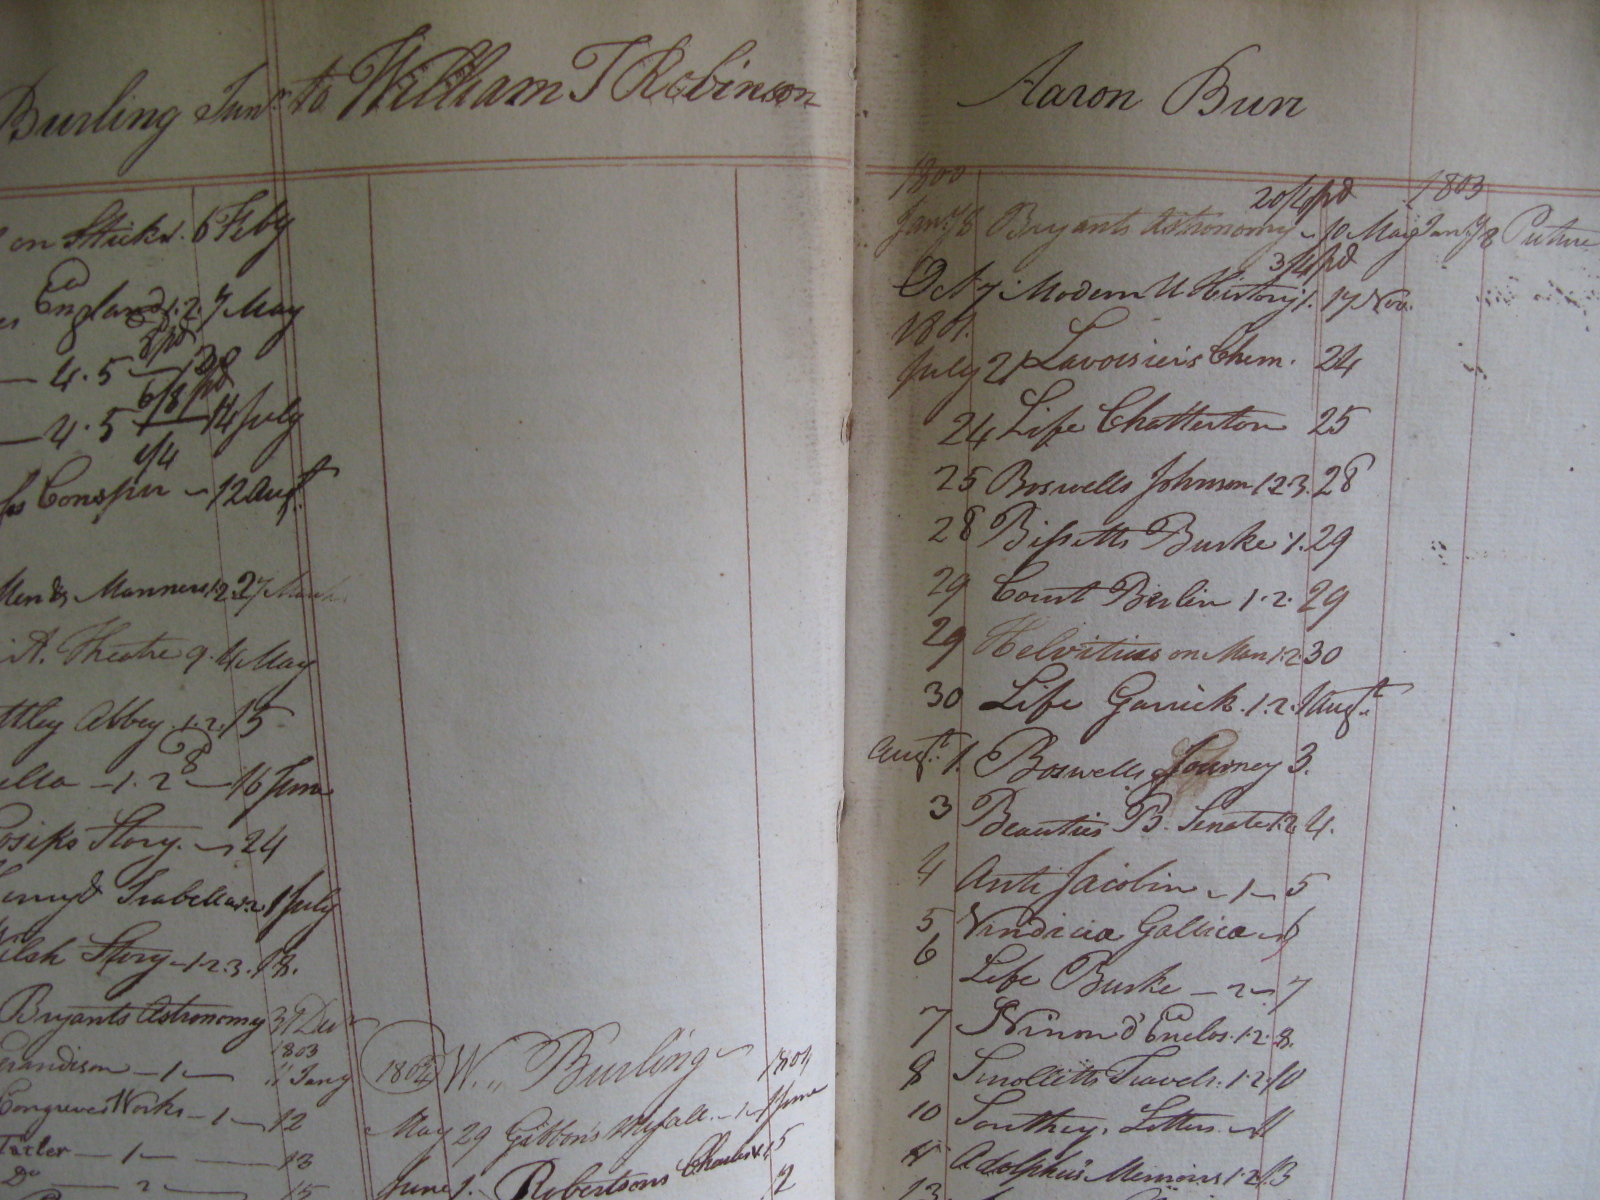 Burling Junr. to William T Robinson
on Sticks. 6 Feby
England 1.2. 7 May
8/ pd
— 4.5 —
6/8 pd
— 4.5 — 14 July
4/4
Conspir — 12 Augt.
Men & Manners 1.2. 27 March
Theatre 9. 4 May
Abbey 1.2. 15
— 1.2 — 16 June
Story. — 24
Isabella 1.2 1 July
Story — 1.2.3. 18.
Bryants Astronomy 31 Decr
1803
Grandison — 1 — 11 Jany
Congreves Works — 1 — 12
Tatler — 1 — 13
Do — 2 — 15
1802 W. Burling 1804
May 29 Gibbon's — 1 — 1 June
June 1. Robertsons Charles V. 1. 5
Aaron Burr
1800
20/4 pd
Jany. 8 Bryants Astronomy — 10 May
3/4 pd
Oct 7 Modern U History 1. 17 Nov.
1801.
July 21 Lavoisiers Chem. 24
24 Life Chatterton 25
25 Boswells Johnson 1 2 3. 28
28 Bissetts Burke 1. 29
29 Court Berlin 1.2. 29
29 Helvitius on Man 1.2 30
30 Life Garrick. 1.2. 1 Augt.
Augt. 1. Boswells Journey 3.
3 Beauties B. Senate 1.2. 4.
4 Anti Jacobin — 1 — 5
5 Vindicia Gallica — 6
6 Life Burke — 2 — 7
7 Ninon d'Enclos. 1.2. 8.
8 Smolletts Travels. 1.2. 10
10 Southey. Letters. — 11
11 Adolphus Memoirs 1.2. 13
13
1803
Jany. 8 Picture